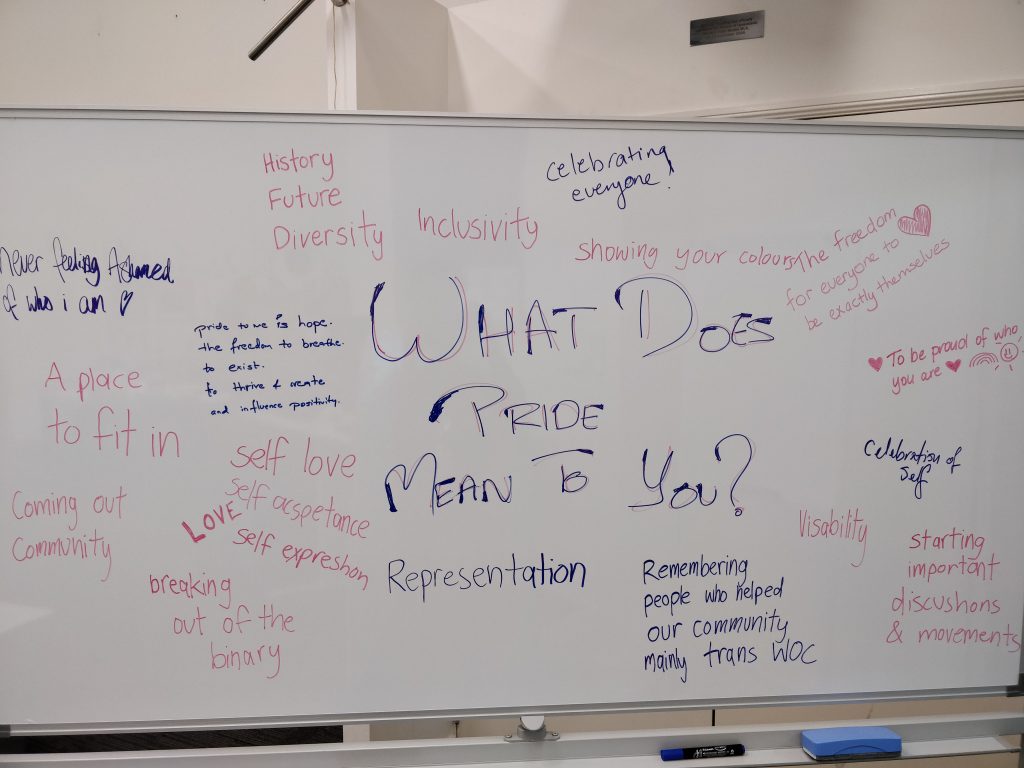 History
Future
Diversity
Inclusivity
Celebrating
everyone!
showing your colours
The freedom
for everyone to
be exactly themselves
Never feeling Ashamed
of who i am
WHAT DOES
PRIDE
MEAN TO YOU?
pride to me is hope.
the freedom to breathe.
to exist.
to thrive & create
and influence positivity.
To be proud of who
you are
A place
to fit in
self love
self acspetance
LOVE
self expreshon
Celebration of
self
Coming out
Community
Visability
starting
important
discushons
& movements
breaking
out of the
binary
Representation
Remembering
people who helped
our community
mainly trans WOC